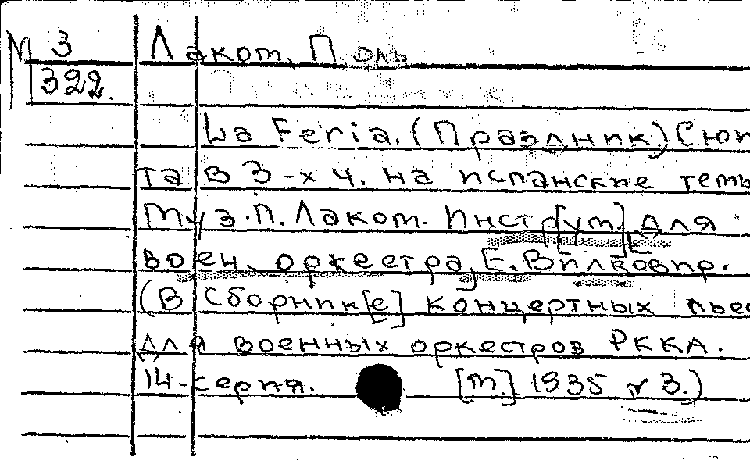 М 3 Лакот, Поль
322.
La Feria. (Праздник) Сюи
та в 3-х ч. на испанские темы
Муз. П. Лаком. Инстр[ум.] для
воен. оркестра,
(В Сборник[е] концертных пьес
для военных оркестров РККА.
14-серия. [М.] 1935 г 3.)